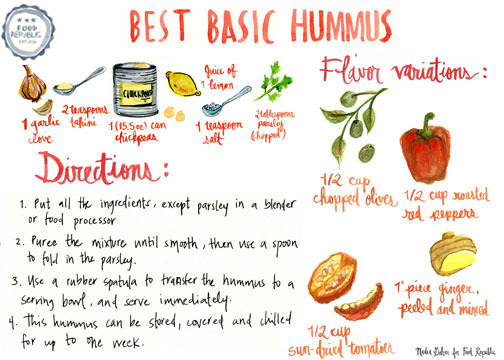 FOOD
REPUBLIC
BEST BASIC HUMMUS
1 garlic
clove
2 teaspoons
tahini
CHICKPEAS
1 (15.5 oz) can
chickpeas
Juice of
1 lemon
1 teaspoon
salt
2 tablespoons
parsley
(chopped)
Directions:
1. Put all the ingredients, except parsley in a blender
or food processor
2. Puree the mixture until smooth, then use a spoon
to fold in the parsley.
3. Use a rubber spatula to transfer the hummus to a
serving bowl, and serve immediately.
4. This hummus can be stored, covered and chilled
for up to one week.
Flavor variations:
1/2 cup
chopped olives
1/2 cup roasted
red peppers
1/2 cup
sun-dried tomatoes
1" piece ginger,
peeled and minced
for Food Republic